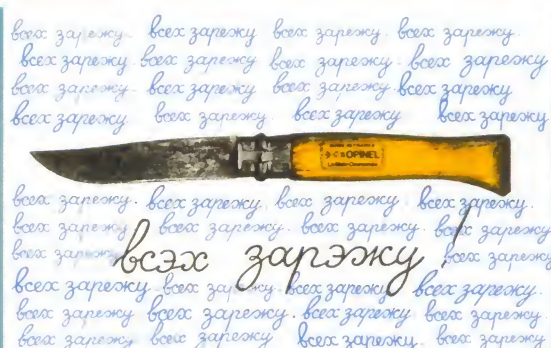 всех зарежу. всех зарежу. всех зарежу. всех зарежу.
всех зарежу. всех зарежу. всех зарежу. всех зарежу
всех зарежу. всех зарежу всех зарежу. всех зарежу
всех зарежу всех зарежу. всех зарежу. всех зарежу
OPINEL
всех зарежу. всех зарежу. всех зарежу. всех зарежу.
всех зарежу. всех зарежу. всех зарежу. всех зарежу
всех зарежу всех зарежу
всэх зарэжу!
всех зарежу. всех зарежу. всех зарежу. всех зарежу.
всех зарежу. всех зарежу. всех зарежу. всех зарежу.
всех зарежу всех зарежу всех зарежу. всех зарежу